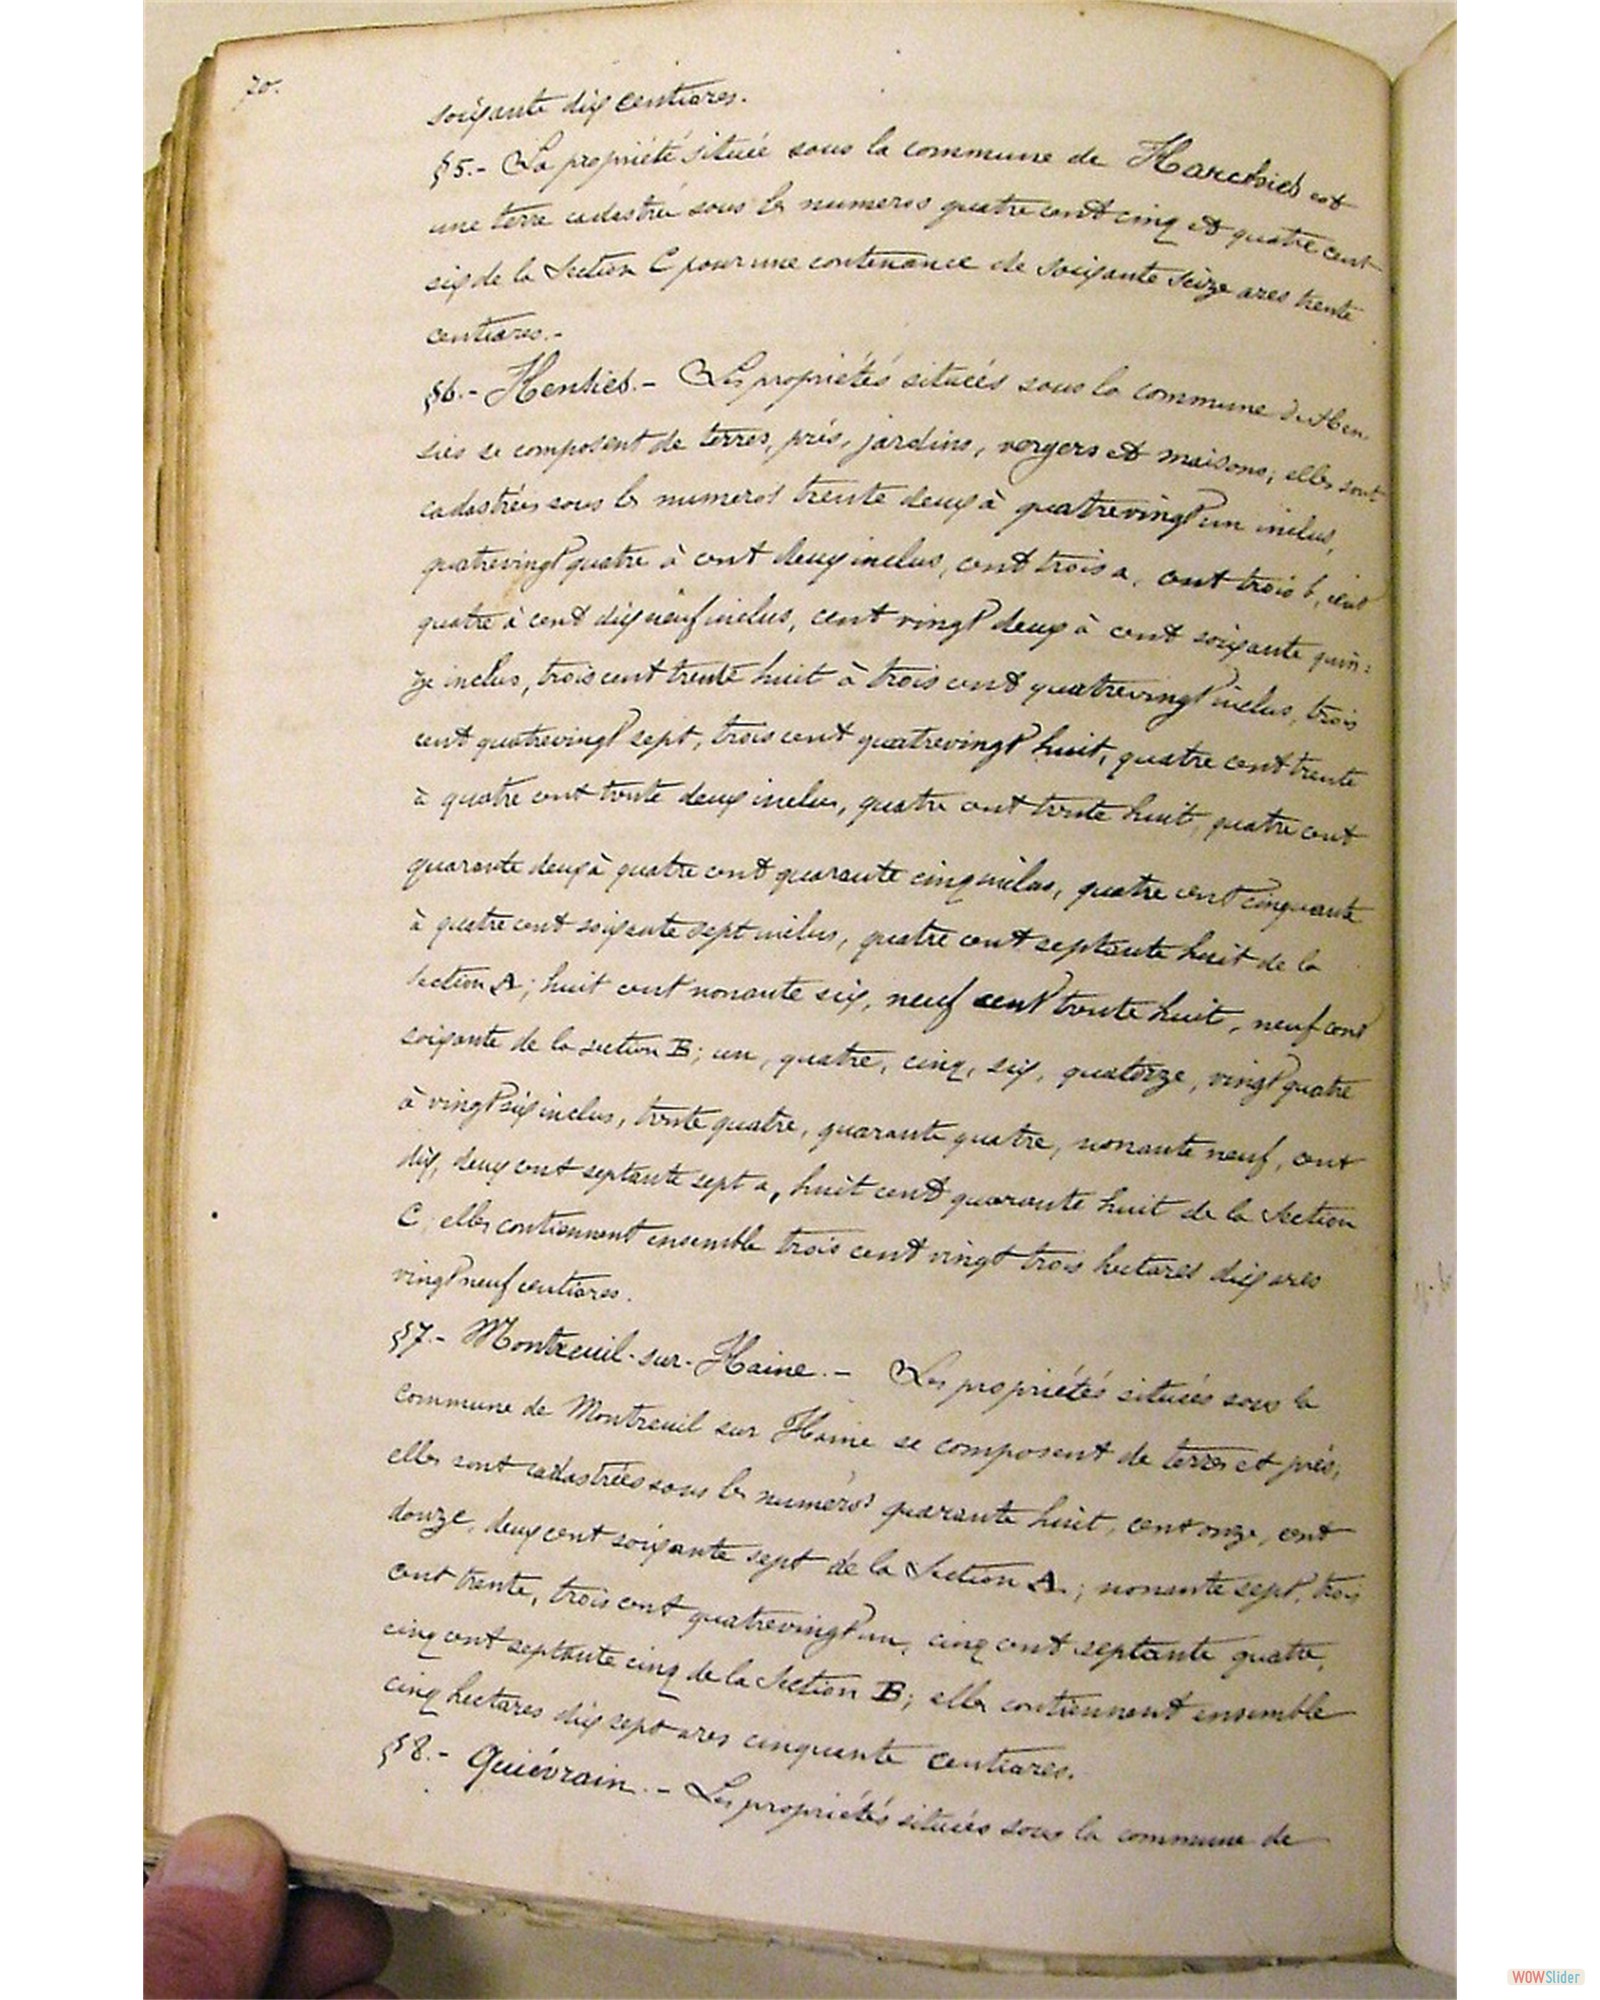 70.
soixante dix centiares.
§5.- La propriété située sous la commune de Harchies est
une terre cadastrée sous les numeros quatre cent cinq et quatre cent
six de la Section C pour une contenance de soixante seize ares trente
centiares.-
§6.- Hensies.- Les propriétés situées sous la commune de Hen
sies se composent de terres, prés, jardins, vergers et maisons; elles sont
cadastrées sous les numeros trente deux à quatrevingt un inclus,
quatrevingt quatre à cent deux inclus, cent trois a, cent trois b, cent
quatre à cent dix neuf inclus, cent vingt deux à cent soixante quin=
ze inclus, trois cent trente huit à trois cent quatrevingt inclus, trois
cent quatrevingt sept, trois cent quatrevingt huit, quatre cent trente
à quatre cent trente deux inclus, quatre cent trente huit, quatre cent
quarante deux à quatre cent quarante cinq inclus, quatre cent cinquante
à quatre cent soixante sept inclus, quatre cent septante huit de la
section A; huit cent nonante six, neuf cent trente huit, neuf cent
soixante de la section B; un, quatre, cinq, six, quatorze, vingt quatre
à vingt six inclus, trente quatre, quarante quatre, nonante neuf, cent
dix, deux cent septante sept a, huit cent quarante huit de la Section
C; elles contiennent ensemble trois cent vingt trois hectares dix ares
vingt neuf centiares.
§7.- Montreuil-sur-Haine.- Les propriétés situées sous la
commune de Montreuil sur Haine se composent de terres et prés;
elles sont cadastrées sous les numéros quarante huit, cent onze, cent
douze, deux cent soixante sept de la Section A; nonante sept, trois
cent trente, trois cent quatrevingt un, cinq cent septante quatre,
cinq cent septante cinq de la Section B; elles contiennent ensemble
cinq hectares dix sept ares cinquante centiares.
§8.- Quiévrain.- Les propriétés situées sous la commune de
WOWSlider